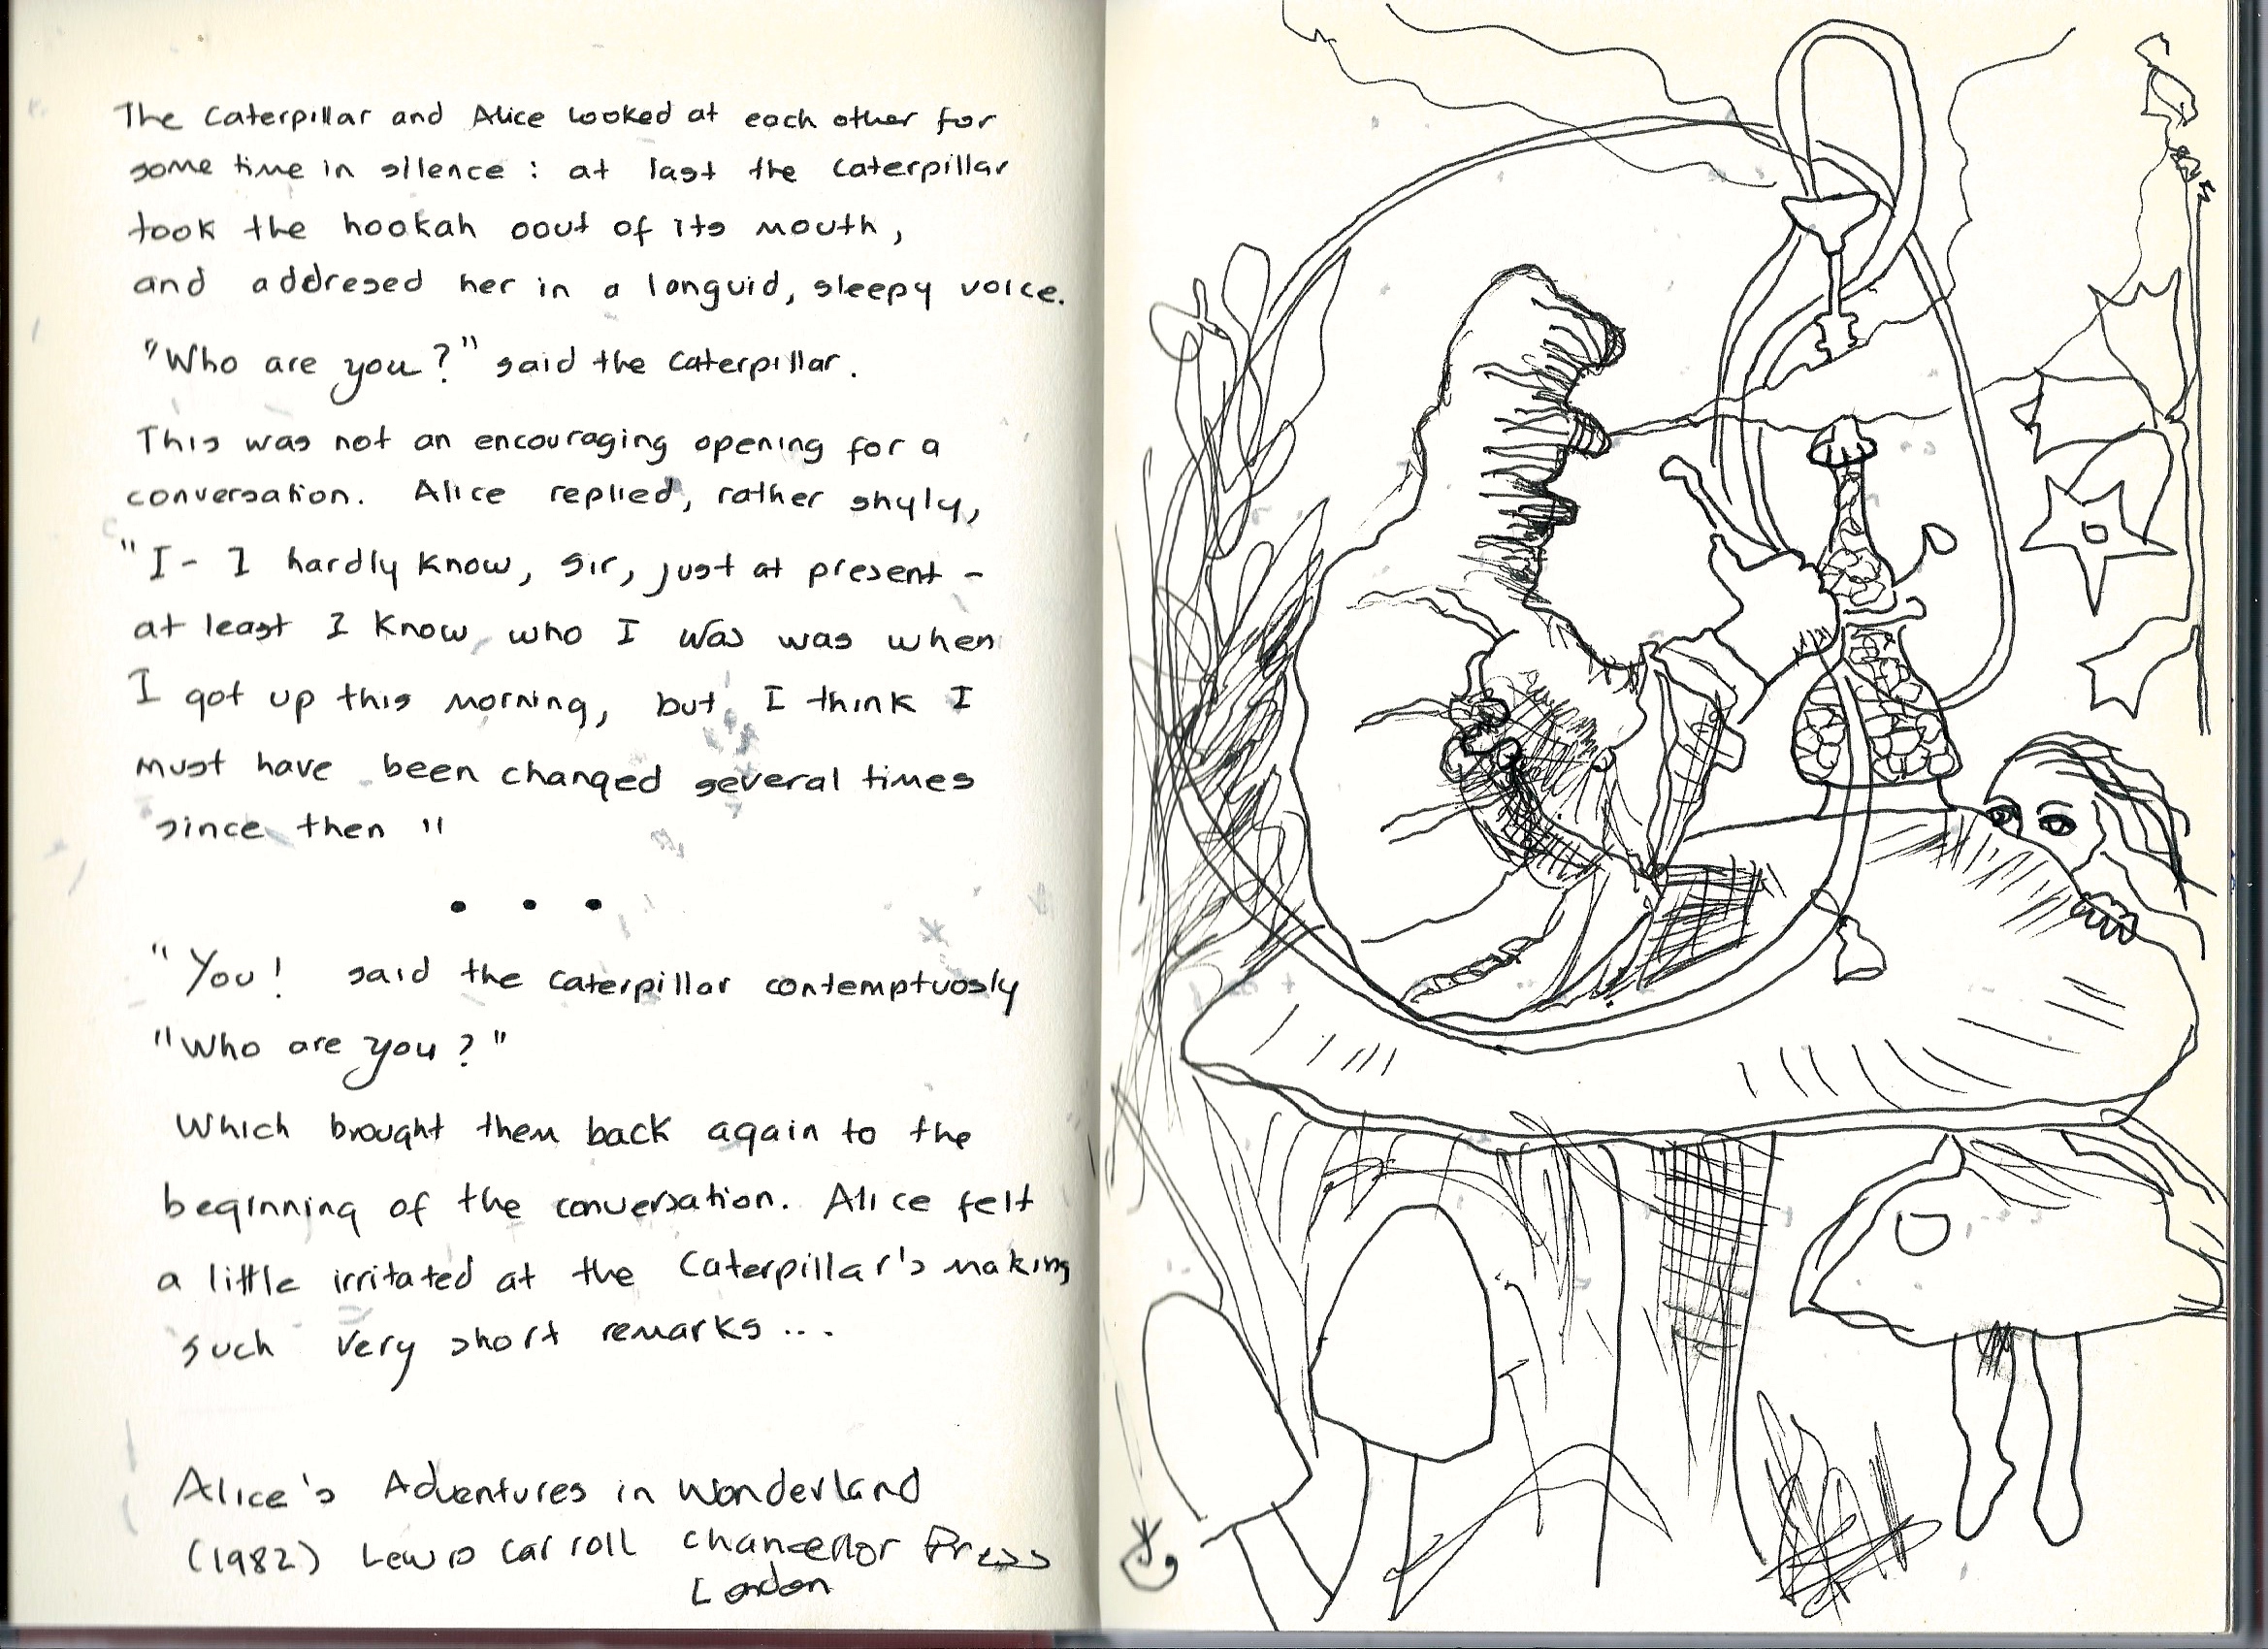 The Caterpillar and Alice looked at each other for
some time in silence : at last the Caterpillar
took the hookah oout of its mouth,
and addresed her in a languid, sleepy voice.
"Who are you?" said the Caterpillar.
This was not an encouraging opening for a
conversation. Alice replied, rather shyly,
"I - I hardly know, Sir, just at present -
at least I know who I was was when
I got up this morning, but I think I
must have been changed several times
since then "
. . .
"You! said the Caterpillar contemptuosly
"Who are you?"
Which brought them back again to the
beginning of the conversation. Alice felt
a little irritated at the Caterpillar's making
such very short remarks ...
Alice's Adventures in Wonderland
(1982) Lewis Carroll Chancellor Press
London